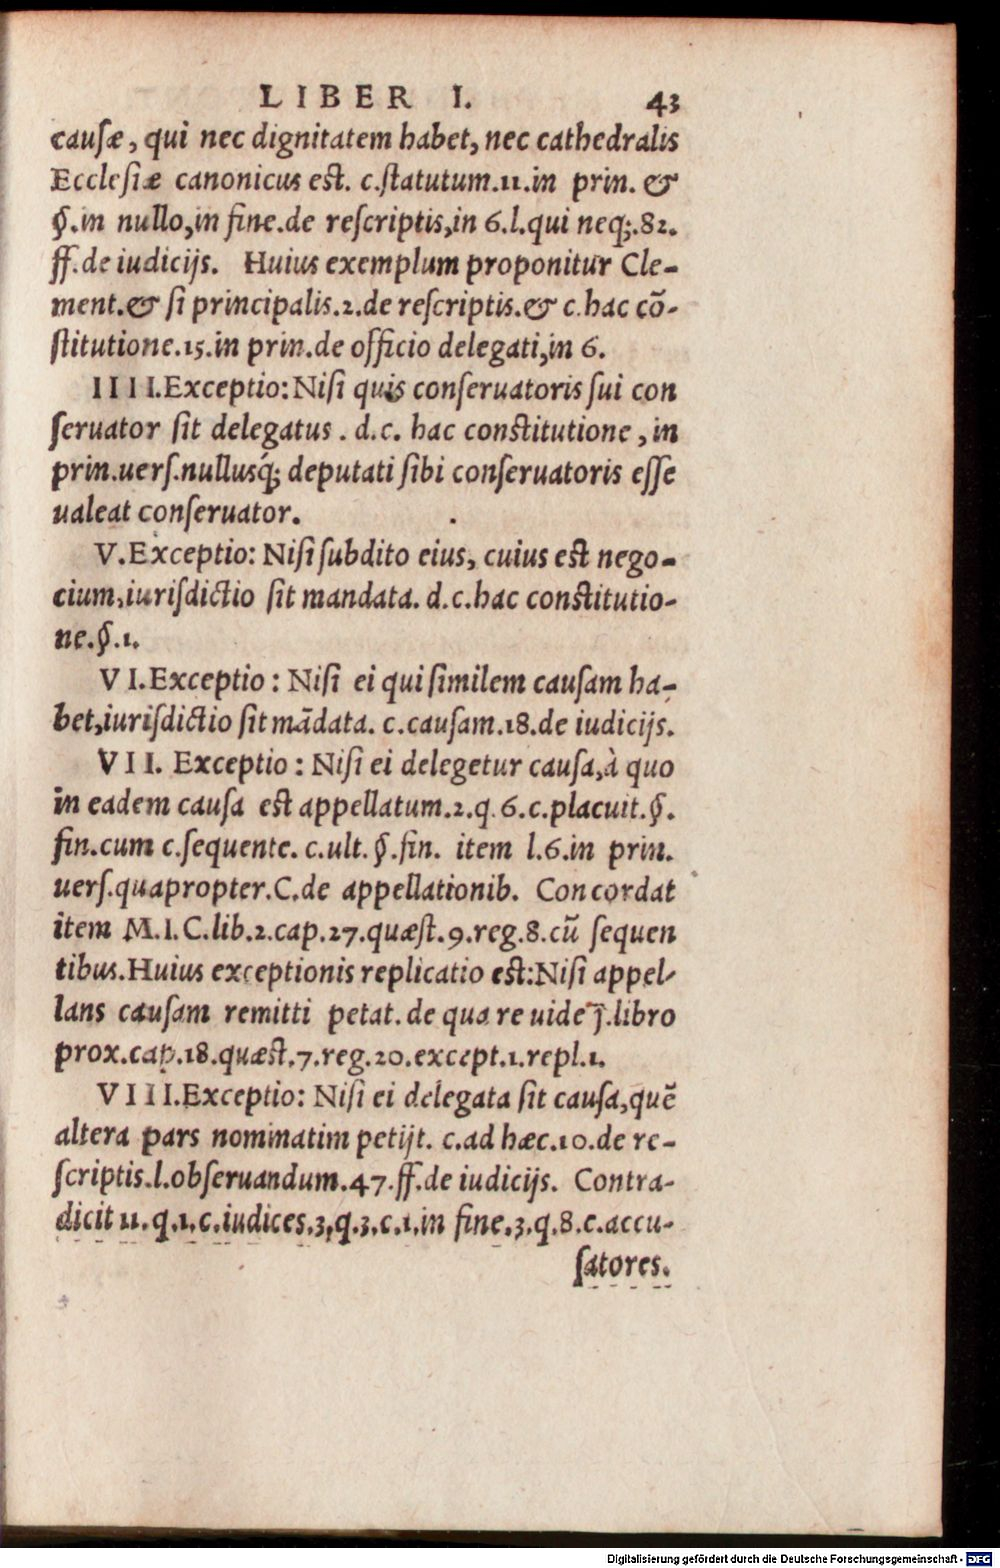 LIBER I. 43
cauſæ, qui nec dignitatem habet, nec cathedralis
Eccleſiæ canonicus est. c.ſtatutum.11.in prin. &
§.in nullo,in fine.de reſcriptis,in 6.l.qui neq;.82.
ff.de iudicijs. Huius exemplum proponitur Cle-
ment.& ſi principalis.2.de reſcriptis.& c.hac cō-
ſtitutione.15.in prin.de officio delegati,in 6.
IIII.Exceptio:Niſi quis conſeruatoris ſui con
ſeruator ſit delegatus. d.c. hac constitutione,in
prin.uerſ.nullusq́; deputati ſibi conſeruatoris eſſe
ualeat conſeruator.
V.Exceptio: Niſi ſubdito eius, cuius est nego-
cium,iuriſdictio ſit mandata. d.c.hac constitutio-
ne.§.1.
VI.Exceptio: Niſi ei qui ſimilem cauſam ha-
bet,iuriſdictio ſit mādata. c.cauſam.18.de iudicijs.
VII. Exceptio: Niſi ei delegetur cauſa,à quo
in eadem cauſa est appellatum.2.q.6.c.placuit.§.
fin.cum c.ſequente. c.ult.§.fin. item l.6.in prin.
uerſ.quapropter.C.de appellationib. Concordat
item M.I.C.lib.2.cap.27.quæſt.9.reg.8.cū ſequen
tibus.Huius exceptionis replicatio est:Niſi appel-
lans cauſam remitti petat. de qua re uide j̄.libro
prox.cap.18.quæſt.7.reg.20.except.1.repl.1.
VIII.Exceptio: Niſi ei delegata ſit cauſa,quē
altera pars nominatim petijt. c.ad hæc.10.de re-
ſcriptis.l.obſeruandum.47.ff.de iudicijs. Contra-
dicit 11.q.1.c.iudices.3.q.3.c.1.in fine.3.q.8.c.accu-
ſatores.
Digitalisierung gefördert durch die Deutsche Forschungsgemeinschaft - DFG